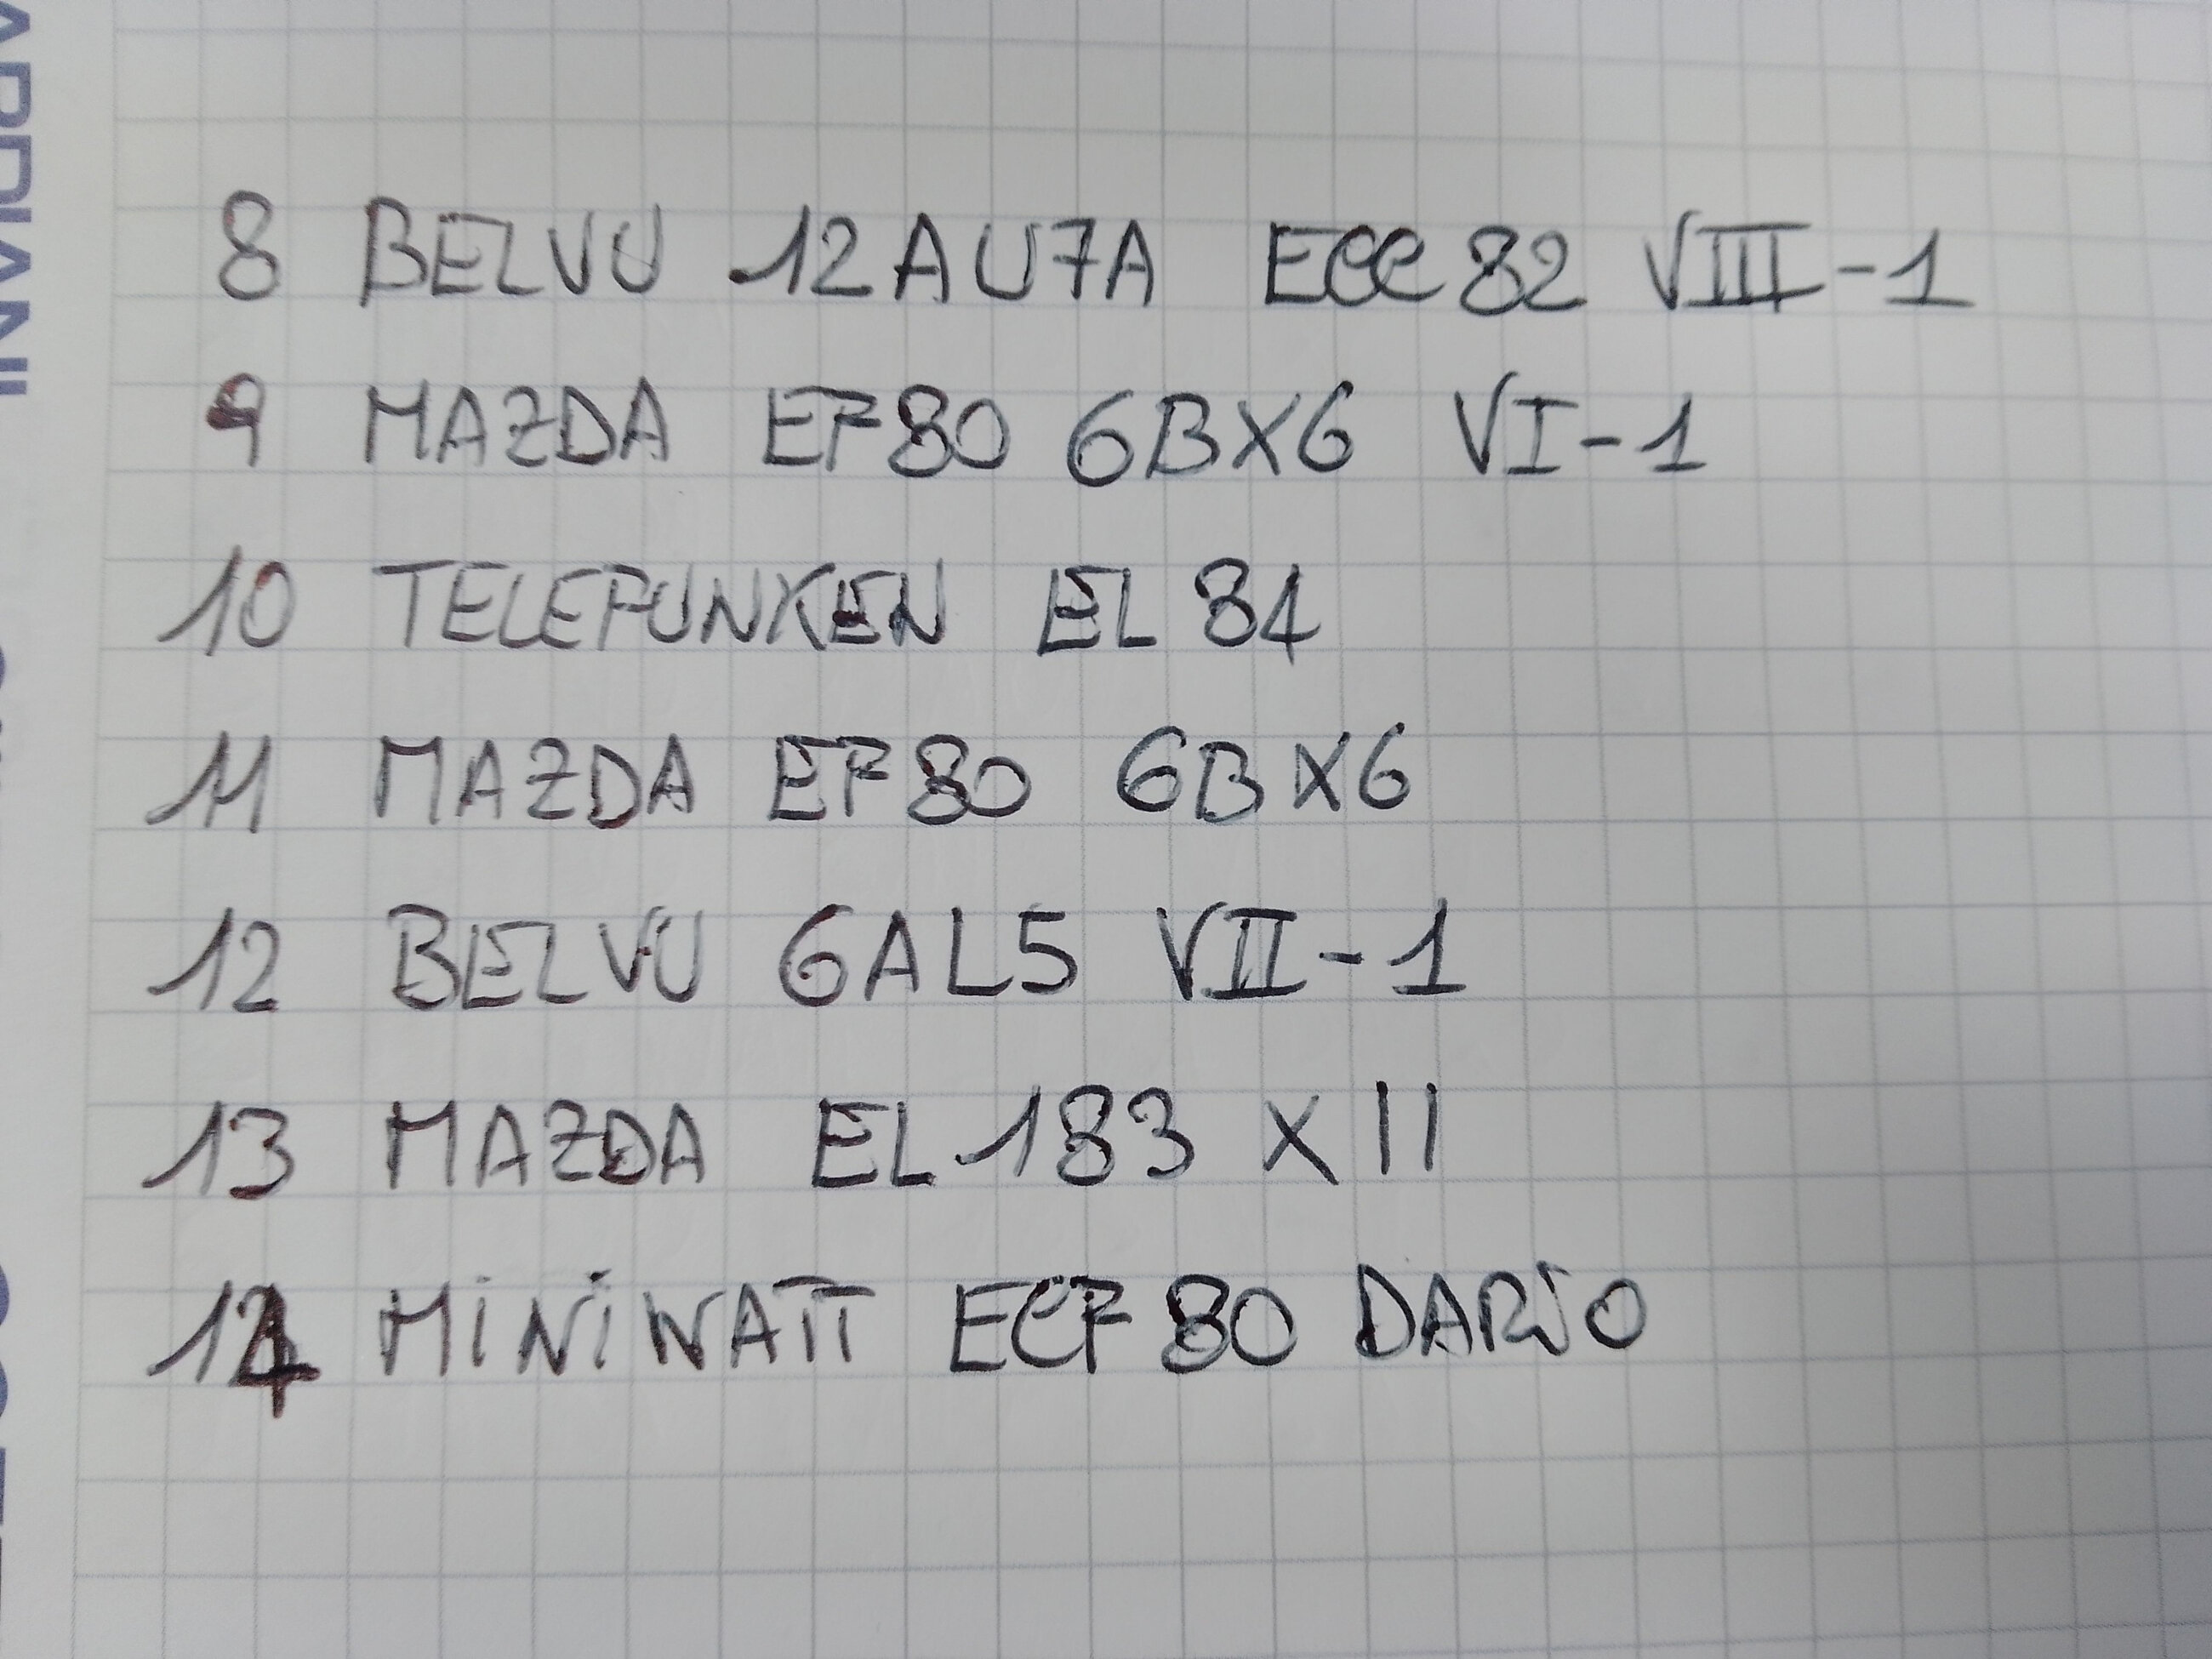 8 BELVU 12AU7A ECC 82 VIII-1
9 MAZDA EF80 6BX6 VI-1
10 TELEFUNKEN EL 84
11 MAZDA EF80 6BX6
12 BELVU 6AL5 VII-1
13 MAZDA EL183 XII
14 MINIWATT ECF 80 DARIO